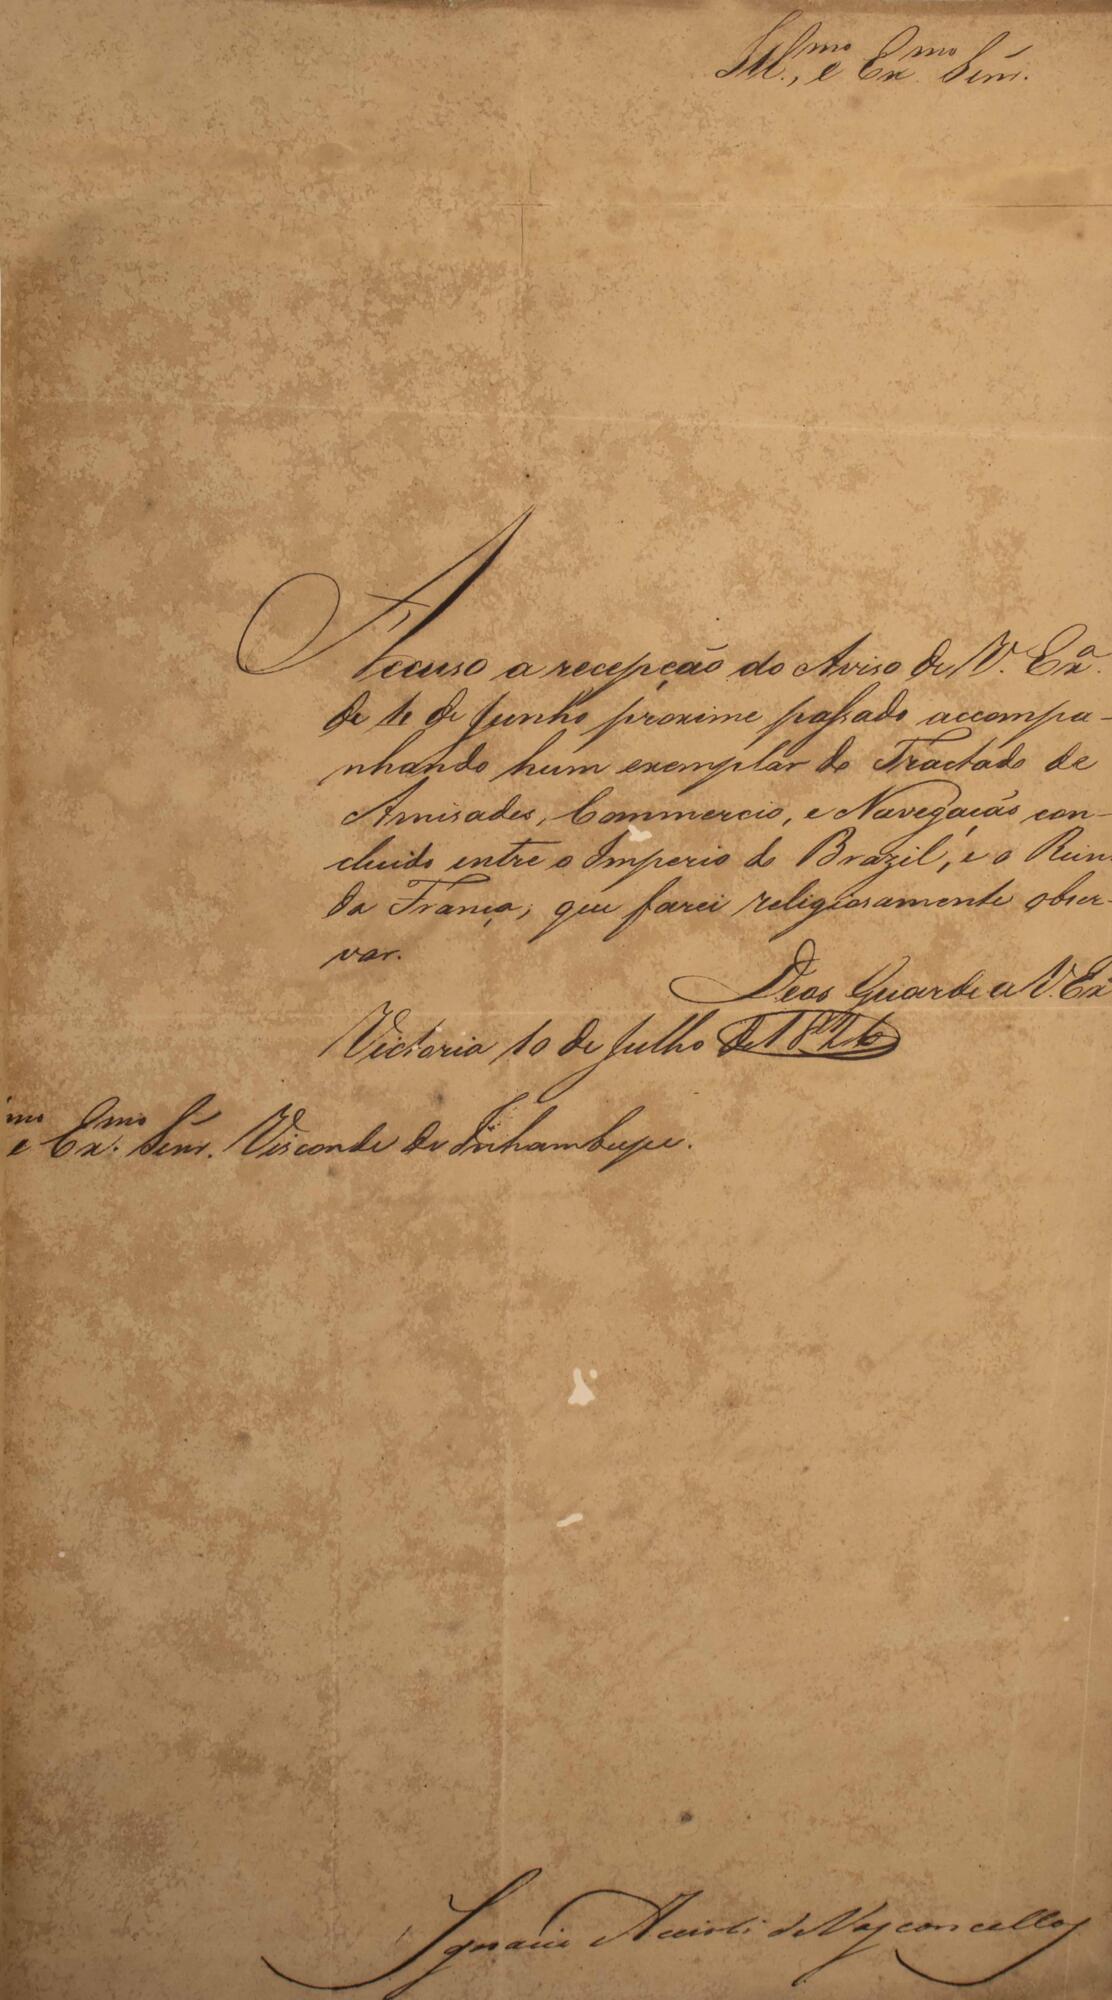 Ill.mo, e Ex.mo Senr.
Accuso a recepção do Aviso de V. Ex.a
de 10 de Junho proximo passado accompa-
nhando hum exemplar do Tractado de
Amisades, Commercio, e Navegação con-
cluido entre o Imperio do Brazil, e o Rein
da França, que farei religiosamente obser-
var.
Deos Guarde a V. Ex
Victoria 10 de Julho de 1826
mo e Ex.mo Senr. Visconde de Inhambupe.
Ignacio Accioli de Vasconcellos